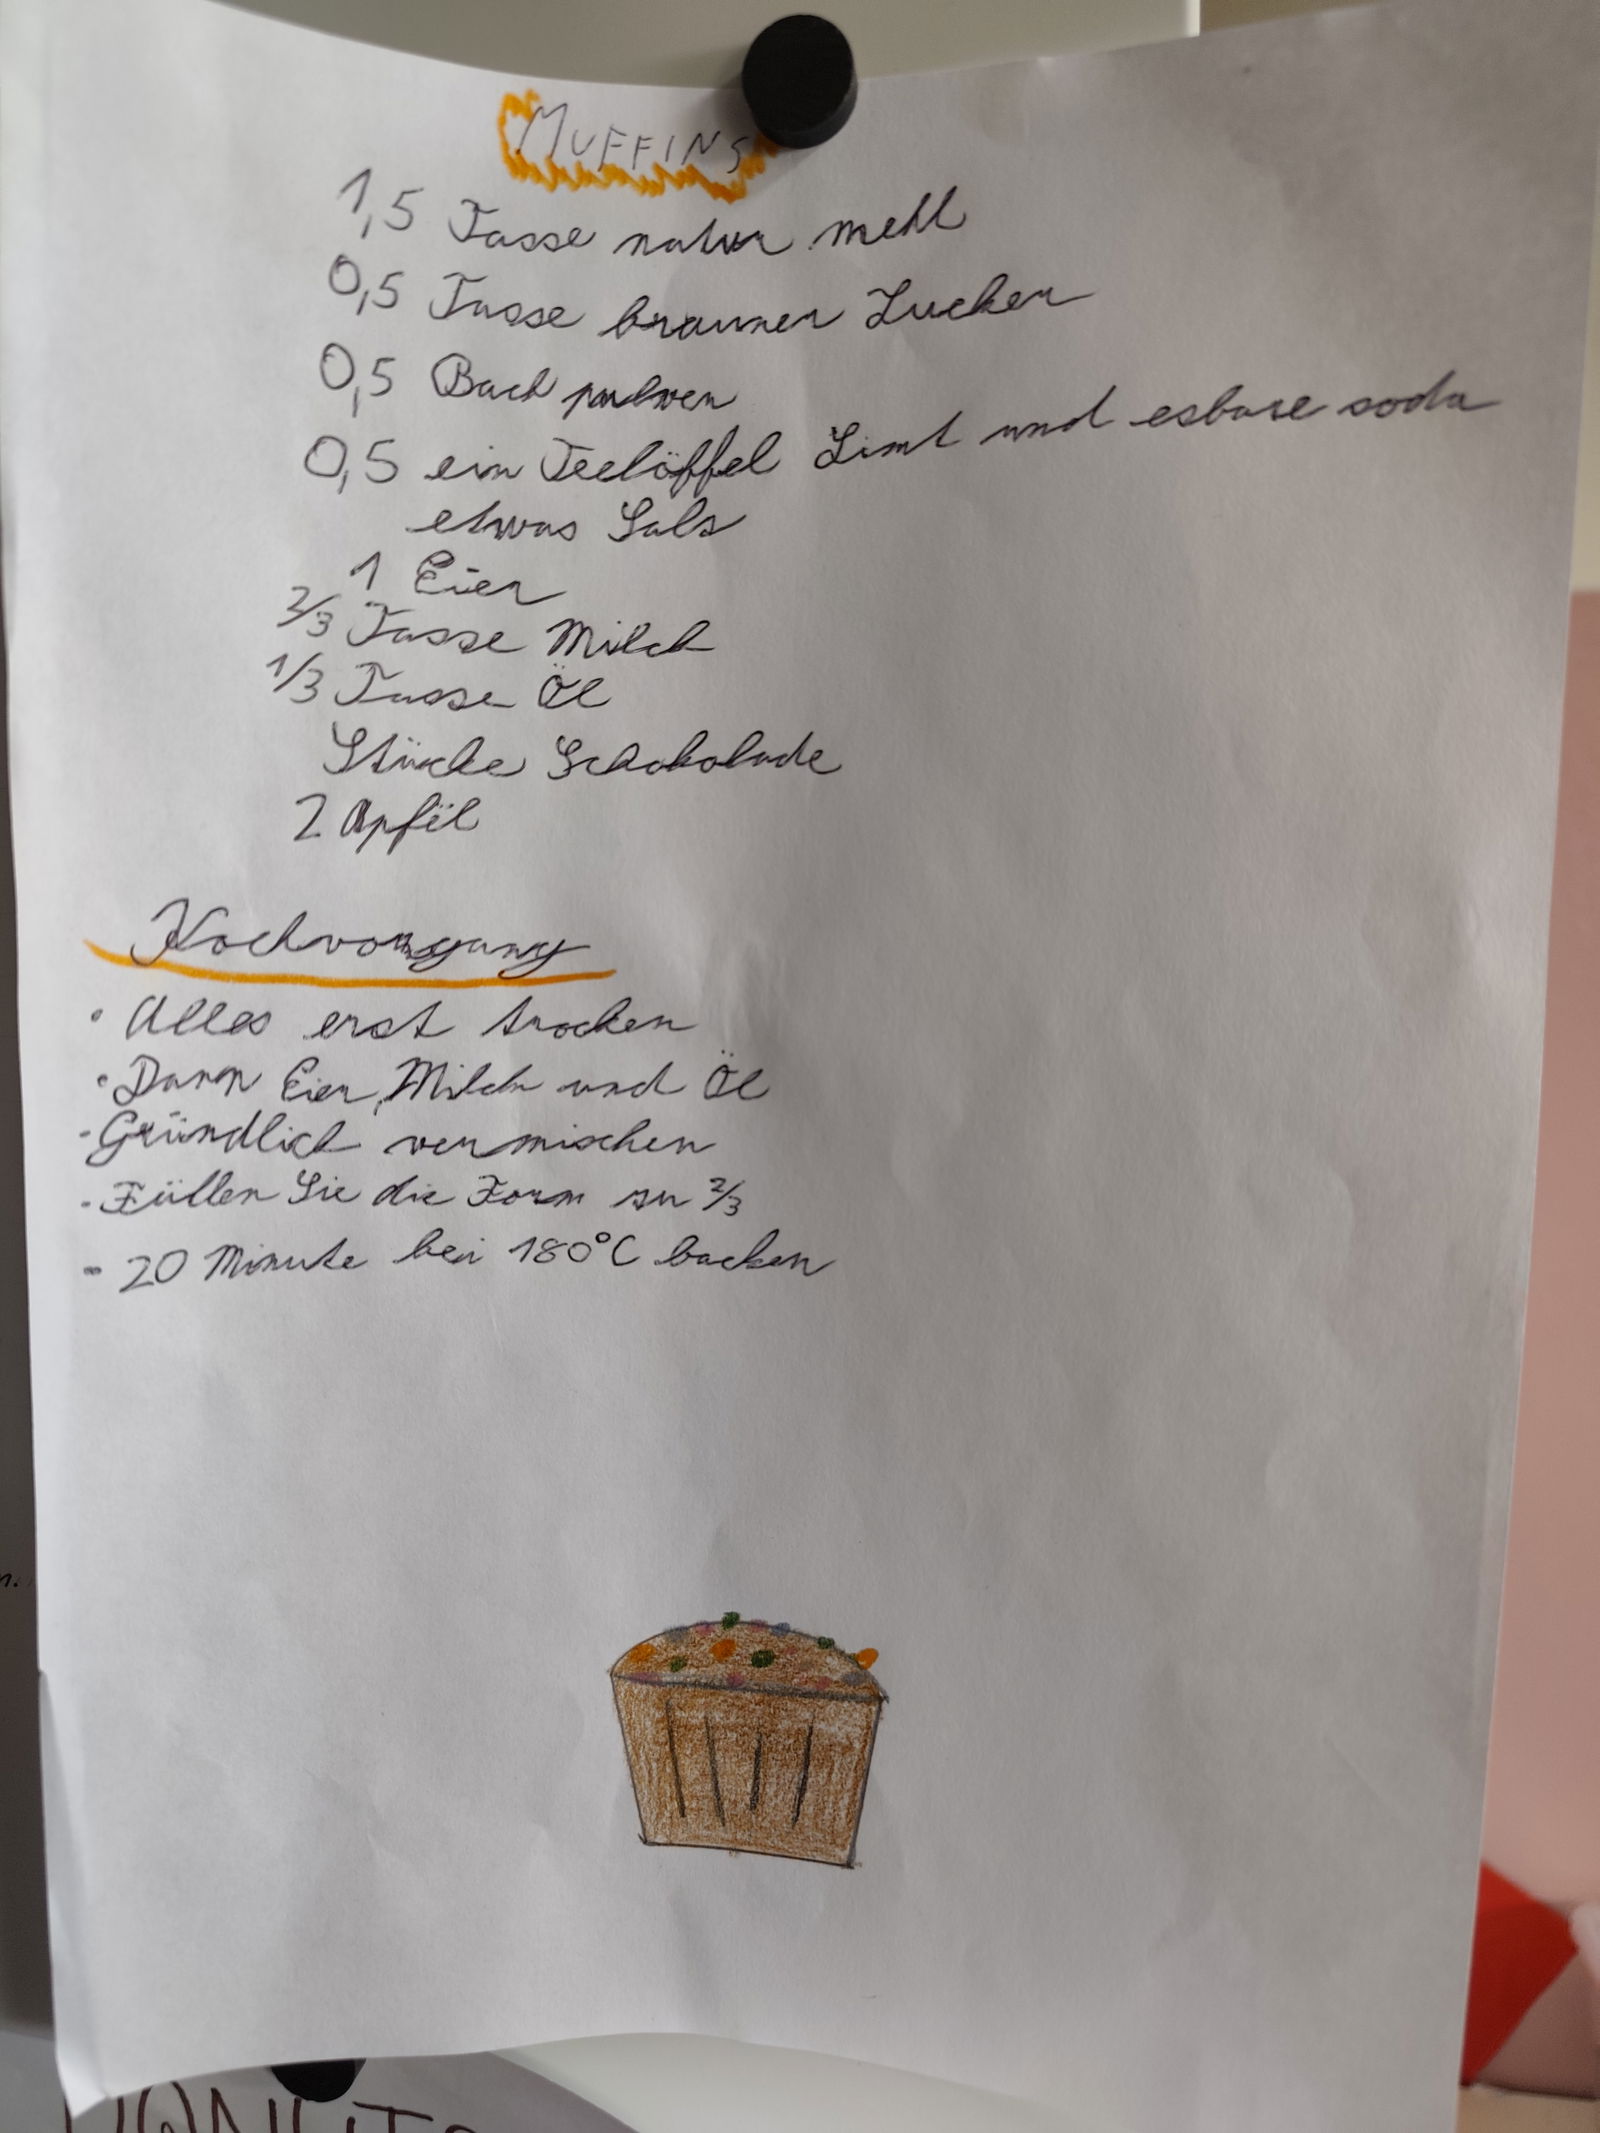 MUFFINS
1,5 Tasse natur mehl
0,5 Tasse brauner Zucker
0,5 Back pulver
0,5 ein Teelöffel Zimt und esbare soda
etwas Salz
1 Eier
2/3 Tasse Milch
1/3 Tasse Öl
Stücke Schokolade
2 Apfël
Kochvorgang
• Alles erst trocken
• Dann Eier, Milch und Öl
- Gründlich vermischen
- Füllen Sie die Form zu 2/3
- 20 Minute bei 180°C backen